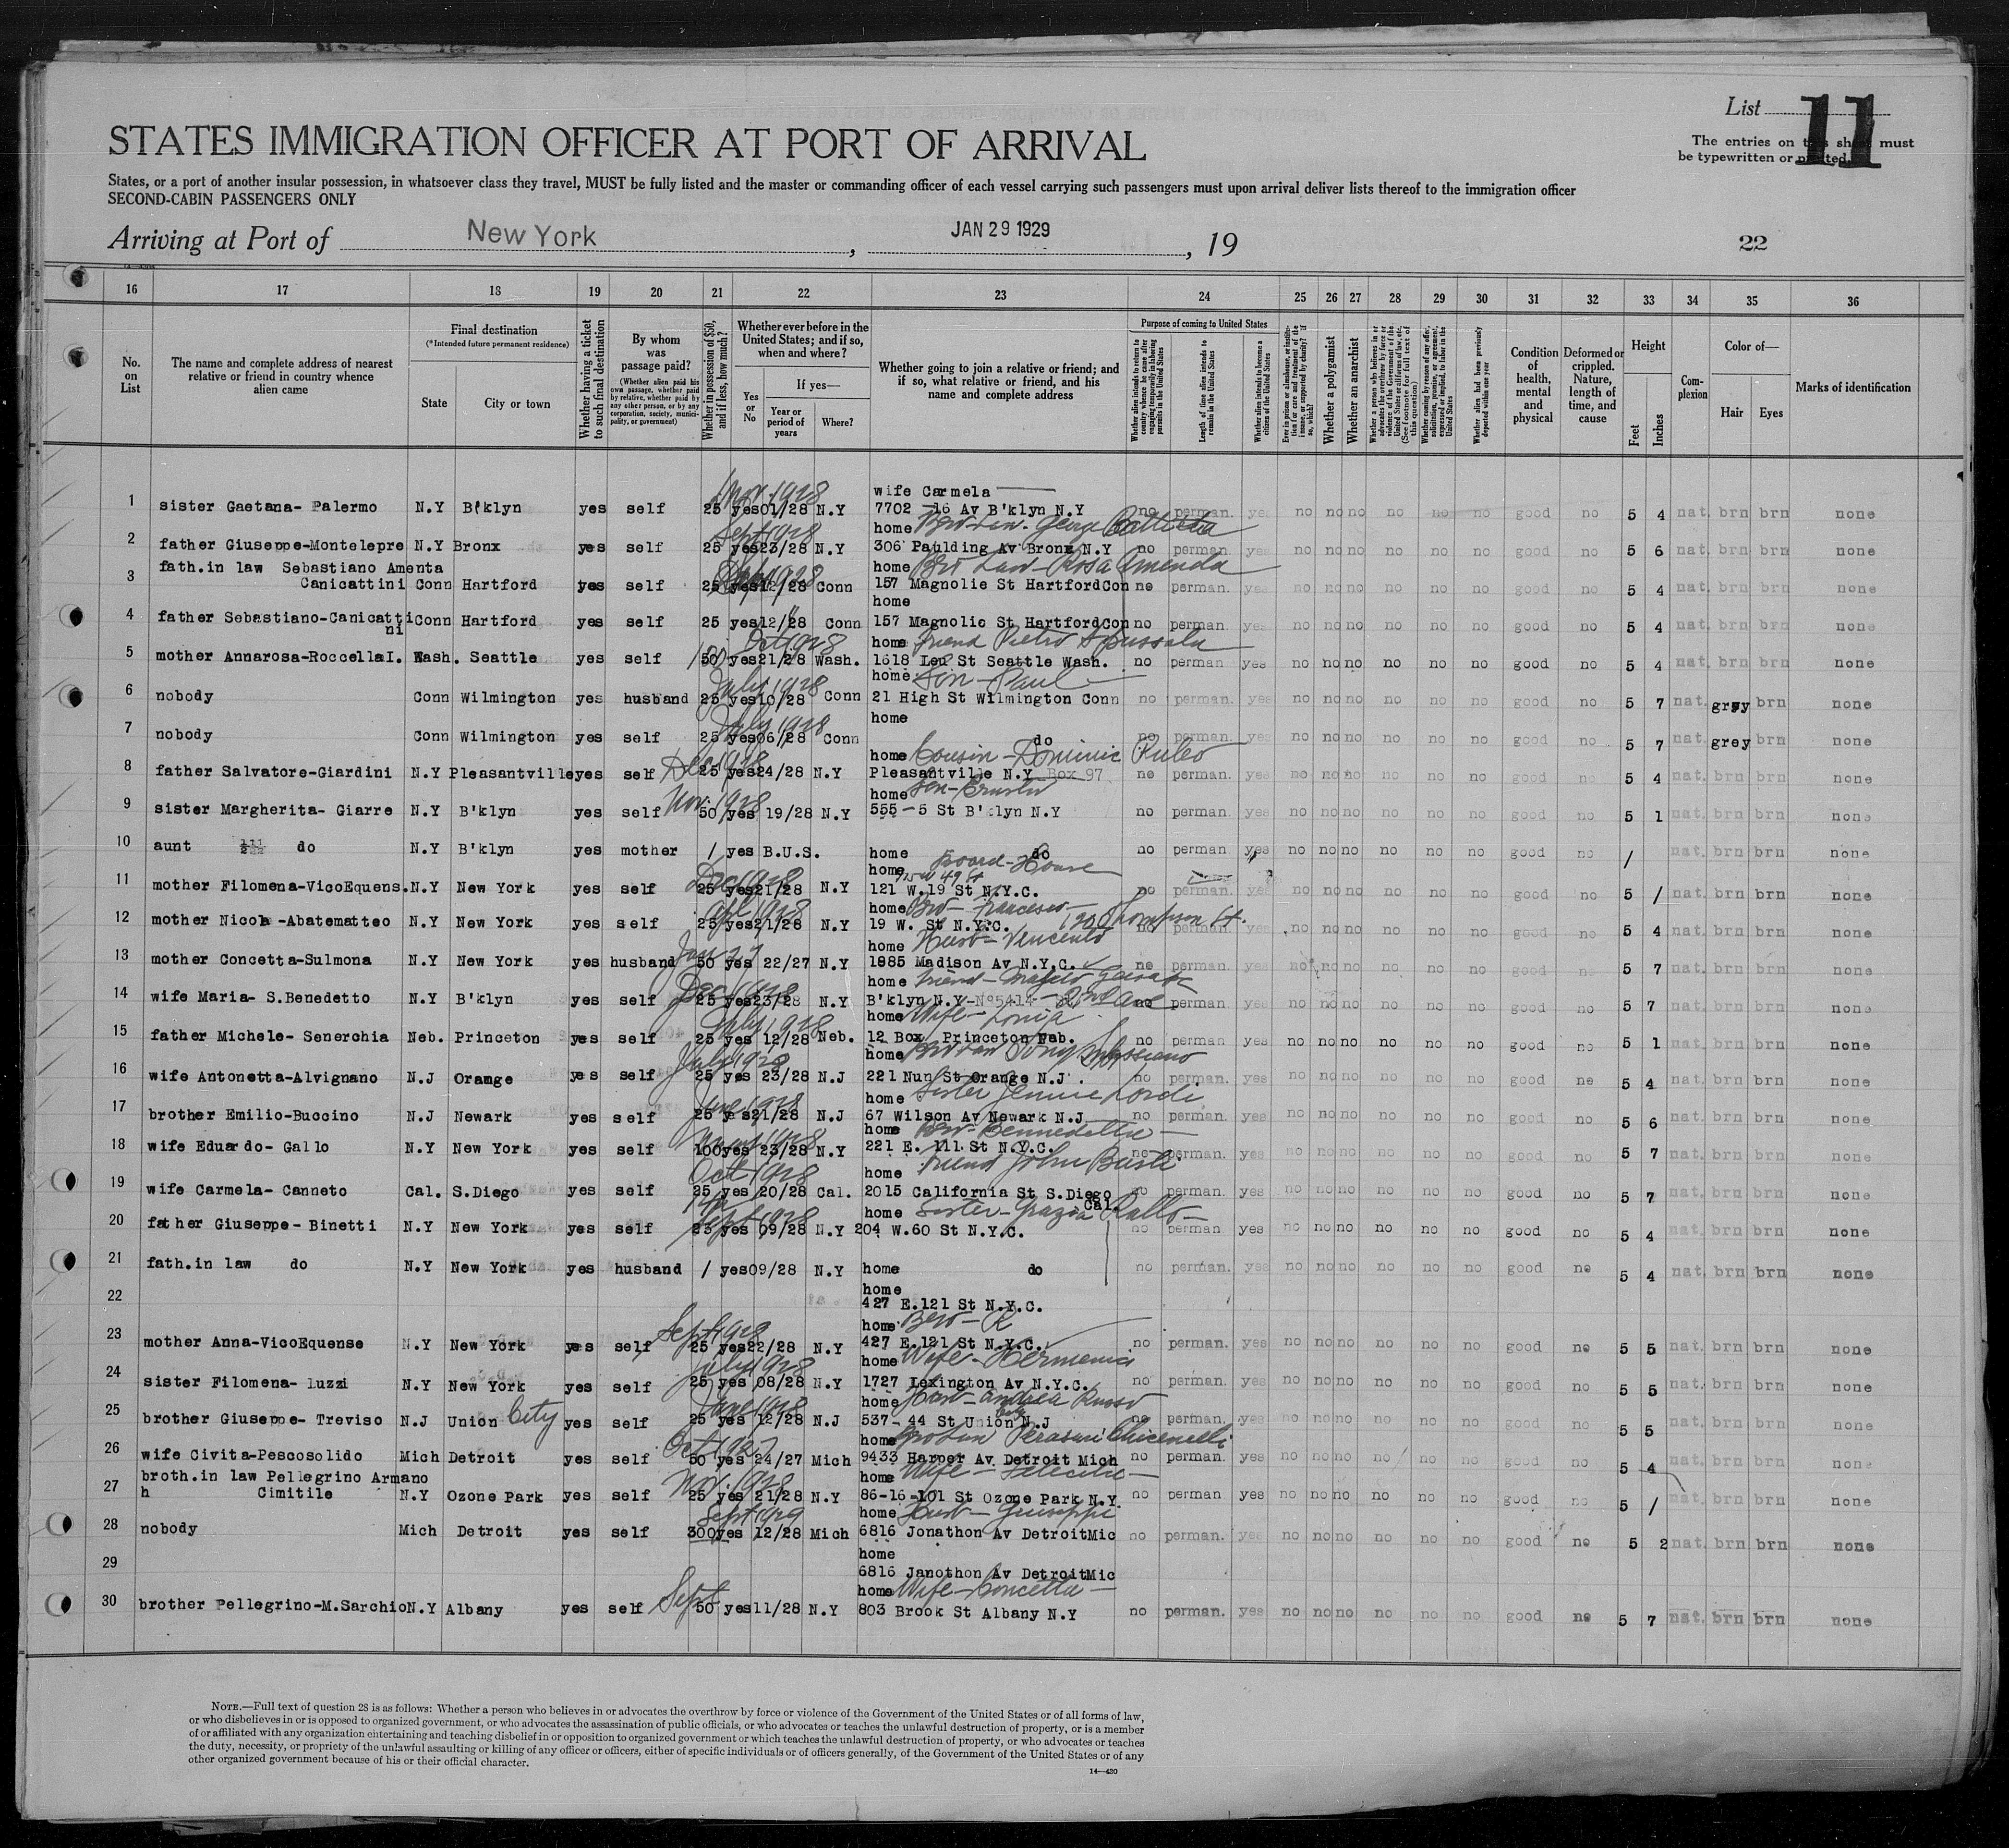 List 11
The entries on this sheet must
be typewritten or printed.
STATES IMMIGRATION OFFICER AT PORT OF ARRIVAL
States, or a port of another insular possession, in whatsoever class they travel, MUST be fully listed and the master or commanding officer of each vessel carrying such passengers must upon arrival deliver lists thereof to the immigration officer
SECOND-CABIN PASSENGERS ONLY
Arriving at Port of New York, JAN 29 1929, 19 22
16 17 18 19 20 21 22 23 24 25 26 27 28 29 30 31 32 33 34 35 36
No. on List
The name and complete address of nearest relative or friend in country whence alien came
Final destination
(*Intended future permanent residence)
State
City or town
Whether having a ticket to such final destination
By whom was passage paid?
(Whether alien paid his own passage, whether paid by relative, whether paid by any other person, or by any corporation, society, municipality, or government)
Whether in possession of $50, and if less, how much?
Whether ever before in the United States; and if so, when and where?
Yes or No
If yes—
Year or period of years
Where?
Whether going to join a relative or friend; and if so, what relative or friend, and his name and complete address
Purpose of coming to United States
Whether alien intends to return to country whence he came after engaging temporarily in laboring pursuits in the United States
Length of time alien intends to remain in the United States
Whether alien intends to become a citizen of the United States
Ever in prison or almshouse, or institution for care and treatment of the insane, or supported by charity? If so, which?
Whether a polygamist
Whether an anarchist
Whether a person who believes in or advocates the overthrow by force or violence of the Government of the United States or all forms of law, etc. (See footnote for full text of this question)
Whether coming by reason of any offer, solicitation, promise, or agreement, expressed or implied, to labor in the United States
Whether alien had been previously deported within one year
Condition of health, mental and physical
Deformed or crippled. Nature, length of time, and cause
Height
Feet
Inches
Complexion
Color of—
Hair
Eyes
Marks of identification
Nov. 1928 wife Carmela
1 sister Gaetana- Palermo N.Y B'klyn yes self 25 yes 01/28 N.Y 7702 -16 Av B'klyn N.Y no perman. yes no no no no no no good no 5 4 nat. brn brn none
Sept 1928 home George
2 father Giuseppe-Montelepre N.Y Bronx yes self 25 yes 23/28 N.Y 306 Paulding Av Bronx N.Y no perman. yes no no no no no no good no 5 6 nat. brn brn none
fath.in law Sebastiano Amenta 1928 home Rosa Amenda
3 Canicattini Conn Hartford yes self 25 yes 12/28 Conn 157 Magnolie St HartfordCon no perman. yes no no no no no no good no 5 4 nat. brn brn none
home
4 father Sebastiano-Canicattini Conn Hartford yes self 25 yes 12/28 Conn 157 Magnolie St HartfordCon no perman. yes no no no no no no good no 5 4 nat. brn brn none
Oct 1928 home friend Pietro
5 mother Annarosa-RoccellaI. Wash. Seattle yes self 50 yes 21/28 Wash. 1618 Len St Seattle Wash. no perman yes no no no no no no good no 5 4 nat. brn brn none
July 1928 home Son - Paul
6 nobody Conn Wilmington yes husband 25 yes 10/28 Conn 21 High St Wilmington Conn no perman. yes no no no no no no good no 5 7 nat. grey brn none
July 1928 home
7 nobody Conn Wilmington yes self 25 yes 06/28 Conn do no perman. yes no no no no no no good no 5 7 nat. grey brn none
Dec 1928 home Cousin - Dominic Puleo
8 father Salvatore-Giardini N.Y Pleasantville yes self 25 yes 24/28 N.Y Pleasantville N.Y Box 97 no perman. yes no no no no no no good no 5 4 nat. brn brn none
Nov. 1928 home Son-
9 sister Margherita- Giarre N.Y B'klyn yes self 50 yes 19/28 N.Y 555 - 5 St B'klyn N.Y no perman. yes no no no no no no good no 5 1 nat. brn brn none
10 aunt do N.Y B'klyn yes mother / yes B.U.S. home do no perman yes no no no no no no good no / nat. brn brn none
Dec 1928 home Board-House
11 mother Filomena-VicoEquens. N.Y New York yes self 25 yes 21/28 N.Y 121 W.19 St N.Y.C. no no no no no no no good no 5 / nat. brn brn none
1928 home Bro- Francesco- Thompson St.
12 mother Nicola -Abatematteo N.Y New York yes self 25 yes 21/28 N.Y 19 W. St N.Y.C. no perman. yes no no no no no no good no 5 4 nat. brn brn none
Jan 27 home Husb- Vincenzo
13 mother Concetta-Sulmona N.Y New York yes husband 50 yes 22/27 N.Y 1885 Madison Av N.Y.C. no perman. yes no no no no no no good no 5 7 nat. brn brn none
Dec 1928 home friend-
14 wife Maria- S.Benedetto N.Y B'klyn yes self 25 yes 23/28 N.Y B'klyn N.Y-No5414- 2nd Ave no perman. yes no no no no no no good no 5 7 nat. brn brn none
July 1928 home Wife-
15 father Michele- Senerchia Neb. Princeton yes self 25 yes 12/28 Neb. 12 Box. Princeton Neb. no perman yes no no no no no no good no 5 1 nat. brn brn none
July 1928 home Tony
16 wife Antonetta-Alvignano N.J Orange yes self 25 yes 23/28 N.J 221 Nun St Orange N.J. no perman. yes no no no no no no good no 5 4 nat. brn brn none
June 1928 home Sister Jennie Lordi
17 brother Emilio-Buccino N.J Newark yes self 25 yes 21/28 N.J 67 Wilson Av Newark N.J no perman. yes no no no no no no good no 5 6 nat. brn brn none
1928 home Bro-
18 wife Eduardo- Gallo N.Y New York yes self 100 yes 23/28 N.Y 221 E. 111.St N.Y.C. no perman. yes no no no no no no good no 5 7 nat. brn brn none
Oct 1928 home friend John
19 wife Carmela- Canneto Cal. S.Diego yes self 25 yes 20/28 Cal. 2015 California St S.Diego Cal. no perman. yes no no no no no no good no 5 7 nat. brn brn none
Sept 1928 home Sister- Grazia Rallo-
20 father Giuseppe- Binetti N.Y New York yes self 23 yes 09/28 N.Y 204 W.60 St N.Y.C. no perman. yes no no no no no no good no 5 4 nat. brn brn none
21 fath.in law do N.Y New York yes husband / yes 09/28 N.Y home do no perman. yes no no no no no no good no 5 4 nat. brn brn none
22 home
427 E.121 St N.Y.C.
Sept 1928 home Bro-
23 mother Anna-VicoEquense N.Y New York yes self 25 yes 22/28 N.Y 427 E.121 St N.Y.C. no perman. yes no no no no no no good no 5 5 nat. brn brn none
July 1928 home Wife-
24 sister Filomena- luzzi N.Y New York yes self 25 yes 08/28 N.Y 1727 Lexington Av N.Y.C. no perman. yes no no no no no no good no 5 5 nat. brn brn none
June 1928 home Andrea Russo
25 brother Giuseppe- Treviso N.J Union City yes self 25 yes 12/28 N.J 537- 44 St Union City N.J no perman. yes no no no no no no good no 5 5 nat. brn brn none
Oct 1927 home
26 wife Civita-Pescosolido Mich Detroit yes self 50 yes 24/27 Mich 9433 Harper Av Detroit Mich no perman. yes no no no no no no good no 5 4 nat. brn brn none
broth.in law Pellegrino Armano Nov. 1928 home Wife-
27 h Cimitile N.Y Ozone Park yes self 25 yes 21/28 N.Y 86-16-101 St Ozone Park N.Y. no perman yes no no no no no no good no 5 / nat. brn brn none
Sept 1929 home Husb- Giuseppe
28 nobody Mich Detroit yes self 300 yes 12/28 Mich 6816 Jonathon Av DetroitMic no perman. yes no no no no no no good no 5 2 nat. brn brn none
29 home
6816 Janothon Av DetroitMic
Sept home Wife-Concetta-
30 brother Pellegrino-M.Sarchio N.Y Albany yes self 50 yes 11/28 N.Y 803 Brook St Albany N.Y no perman. yes no no no no no no good no 5 7 nat. brn brn none
NOTE.—Full text of question 28 is as follows: Whether a person who believes in or advocates the overthrow by force or violence of the Government of the United States or of all forms of law,
or who disbelieves in or is opposed to organized government, or who advocates the assassination of public officials, or who advocates or teaches the unlawful destruction of property, or is a member
of or affiliated with any organization entertaining and teaching disbelief in or opposition to organized government or which teaches the unlawful destruction of property, or who advocates or teaches
the duty, necessity, or propriety of the unlawful assaulting or killing of any officer or officers, either of specific individuals or of officers generally, of the Government of the United States or of any
other organized government because of his or their official character.
14—430